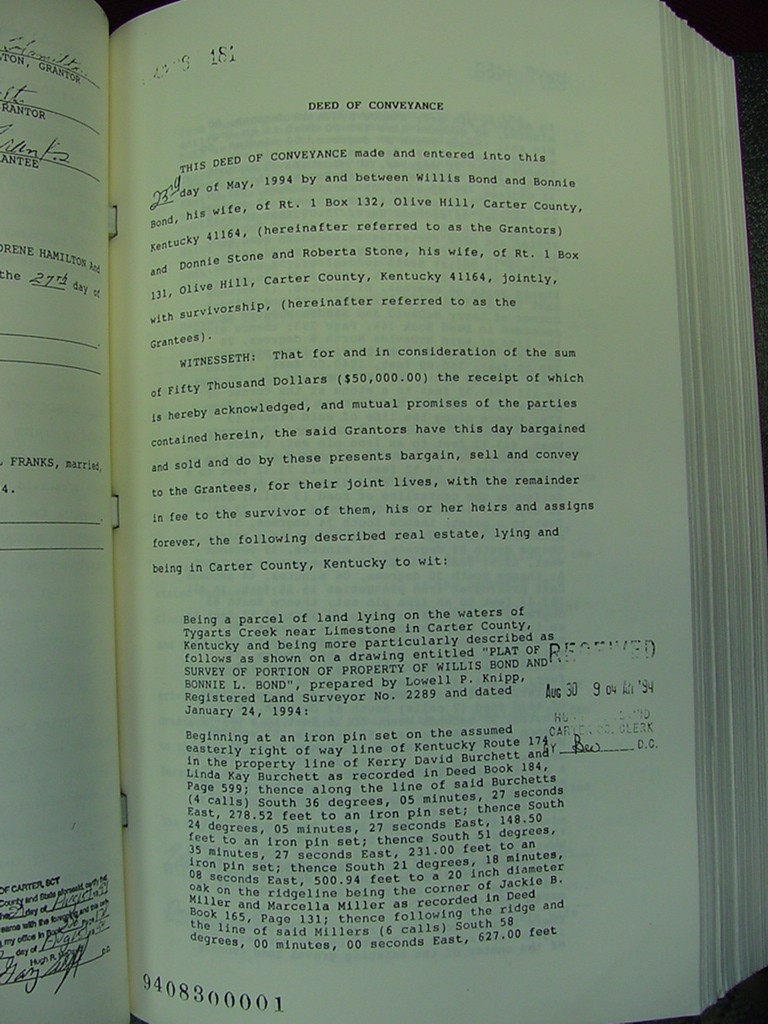 TON, GRANTOR
RANTOR
ANTEE
ORENE HAMILTON And
the 27th day of
FRANKS, married,
4.
OF CARTER, SCT
day of
181
DEED OF CONVEYANCE
THIS DEED OF CONVEYANCE made and entered into this
23rd day of May, 1994 by and between Willis Bond and Bonnie
Bond, his wife, of Rt. 1 Box 132, Olive Hill, Carter County,
Kentucky 41164, (hereinafter referred to as the Grantors)
and Donnie Stone and Roberta Stone, his wife, of Rt. 1 Box
131, Olive Hill, Carter County, Kentucky 41164, jointly,
with survivorship, (hereinafter referred to as the
Grantees).
WITNESSETH: That for and in consideration of the sum
of Fifty Thousand Dollars ($50,000.00) the receipt of which
is hereby acknowledged, and mutual promises of the parties
contained herein, the said Grantors have this day bargained
and sold and do by these presents bargain, sell and convey
to the Grantees, for their joint lives, with the remainder
in fee to the survivor of them, his or her heirs and assigns
forever, the following described real estate, lying and
being in Carter County, Kentucky to wit:
Being a parcel of land lying on the waters of
Tygarts Creek near Limestone in Carter County,
Kentucky and being more particularly described as
follows as shown on a drawing entitled "PLAT OF
SURVEY OF PORTION OF PROPERTY OF WILLIS BOND AND
BONNIE L. BOND", prepared by Lowell P. Knipp,
Registered Land Surveyor No. 2289 and dated
January 24, 1994:
RECEIVED
Aug 30 9 04 AM '94
CLERK
D.C.
Beginning at an iron pin set on the assumed
easterly right of way line of Kentucky Route 174
in the property line of Kerry David Burchett and
Linda Kay Burchett as recorded in Deed Book 184,
Page 599; thence along the line of said Burchetts
(4 calls) South 36 degrees, 05 minutes, 27 seconds
East, 278.52 feet to an iron pin set; thence South
24 degrees, 05 minutes, 27 seconds East, 148.50
feet to an iron pin set; thence South 51 degrees,
35 minutes, 27 seconds East, 231.00 feet to an
iron pin set; thence South 21 degrees, 18 minutes,
08 seconds East, 500.94 feet to a 20 inch diameter
oak on the ridgeline being the corner of Jackie B.
Miller and Marcella Miller as recorded in Deed
Book 165, Page 131; thence following the ridge and
the line of said Millers (6 calls) South 58
degrees, 00 minutes, 00 seconds East, 627.00 feet
9408300001